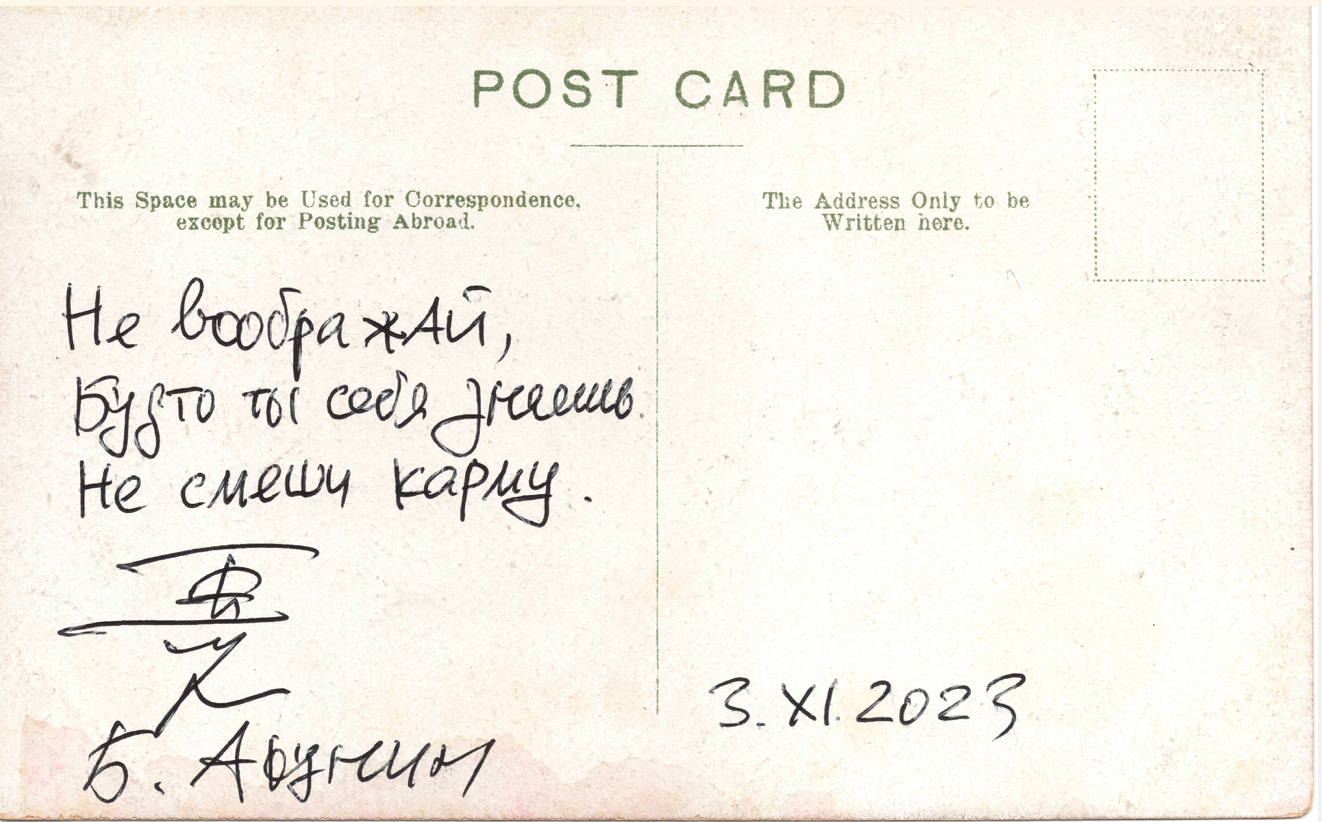 POST CARD
This Space may be Used for Correspondence,
except for Posting Abroad.
The Address Only to be
Written here.
Не воображай,
Будто ты себя знаешь.
Не смеши карму.
Б. Акунин
3. XI. 2023